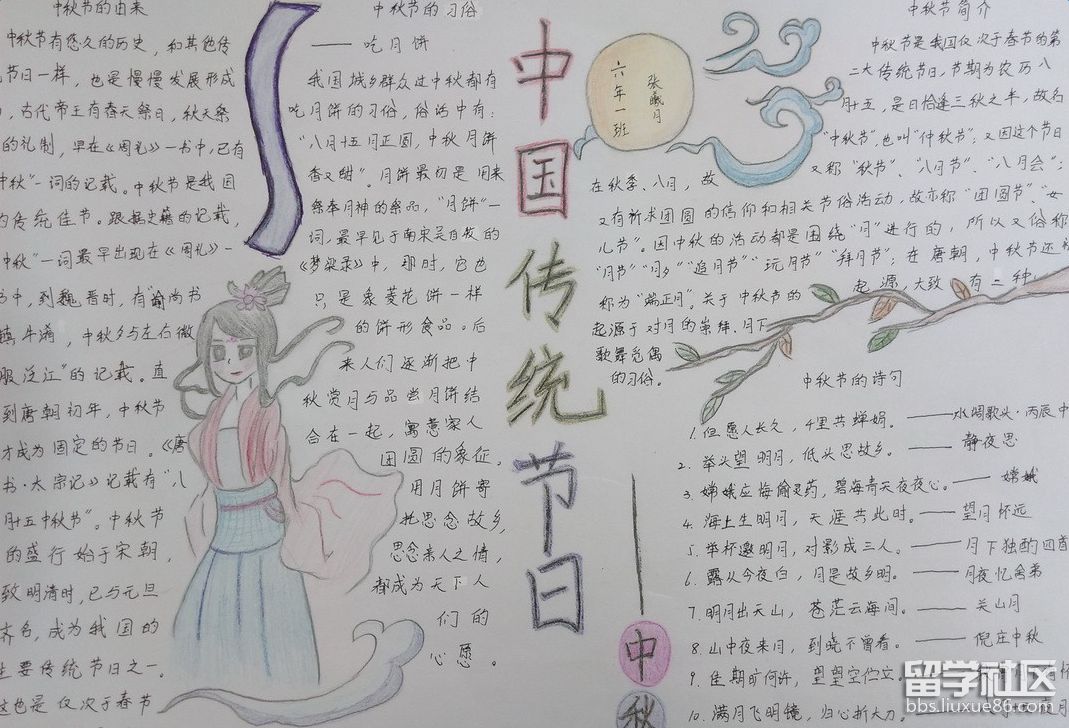 中秋节的由来
中秋节有悠久的历史，和其他传
节日一样，也是慢慢发展形成
，古代帝王有春天祭日，秋天祭
的礼制，早在《周礼》一书中，已有
中秋"一词的记载。中秋节是我国
的传统佳节。跟据史籍的记载，
中秋"一词最早出现在《周礼》一
书中，到魏晋时，有"谕尚书
镇牛渚，中秋夕与左右微
服泛江"的记载。直
到唐朝初年，中秋节
才成为固定的节日。《唐
书·太宗记》记载有"八
月十五中秋节"。中秋节
的盛行始于宋朝，
致明清时，已与元旦
齐名，成为我国的
主要传统节日之一。
这也是仅次于春节
中秋节的习俗
——吃月饼
我国城乡群众过中秋都有
吃月饼的习俗，俗话中有：
"八月十五月正圆，中秋月饼
香又甜"。月饼最初是用来
祭奉月神的祭品，"月饼"一
词，最早见于南宋吴自牧的
《梦粱录》中，那时，它也
只是象菱花饼一样
的饼形食品。后
来人们逐渐把中
秋赏月与品尝月饼结
合在一起，寓意家人
团圆的象征。
用月饼寄
托思念故乡，
思念亲人之情，
都成为天下人
们的
心愿。
中国传统节日
——中秋
六年一班
张曦月
中秋节简介
中秋节是我国仅次于春节的第
二大传统节日，节期为农历八
月十五，是日恰逢三秋之半，故名
"中秋节"，也叫"仲秋节"，又因这个节日
在秋季、八月，故又称"秋节"、"八月节"、"八月会"；
又有祈求团圆的信仰和相关节俗活动，故亦称"团圆节"、"女
儿节"。因中秋的活动都是围绕"月"进行的，所以又俗称
"月节""月夕""追月节""玩月节""拜月节"；在唐朝，中秋节还被
称为"端正月"。关于中秋节的起源，大致有二种：
起源于对月的崇拜、月下
歌舞觅偶
的习俗。
中秋节的诗句
1. 但愿人长久，千里共蝉娟。——水调歌头·丙辰中
2. 举头望明月，低头思故乡。——静夜思
3. 嫦娥应悔偷灵药，碧海青天夜夜心。——嫦娥
4. 海上生明月，天涯共此时。——望月怀远
5. 举杯邀明月，对影成三人。——月下独酌四首
6. 露从今夜白，月是故乡明。——月夜忆舍弟
7. 明月出天山，苍茫云海间。——关山月
8. 山中夜来月，到晓不曾看。——倪庄中秋
9. 佳期旷何许，望望空伫立。
10. 满月飞明镜，归心折大刀。
留学社区
bbs.liuxue86.com